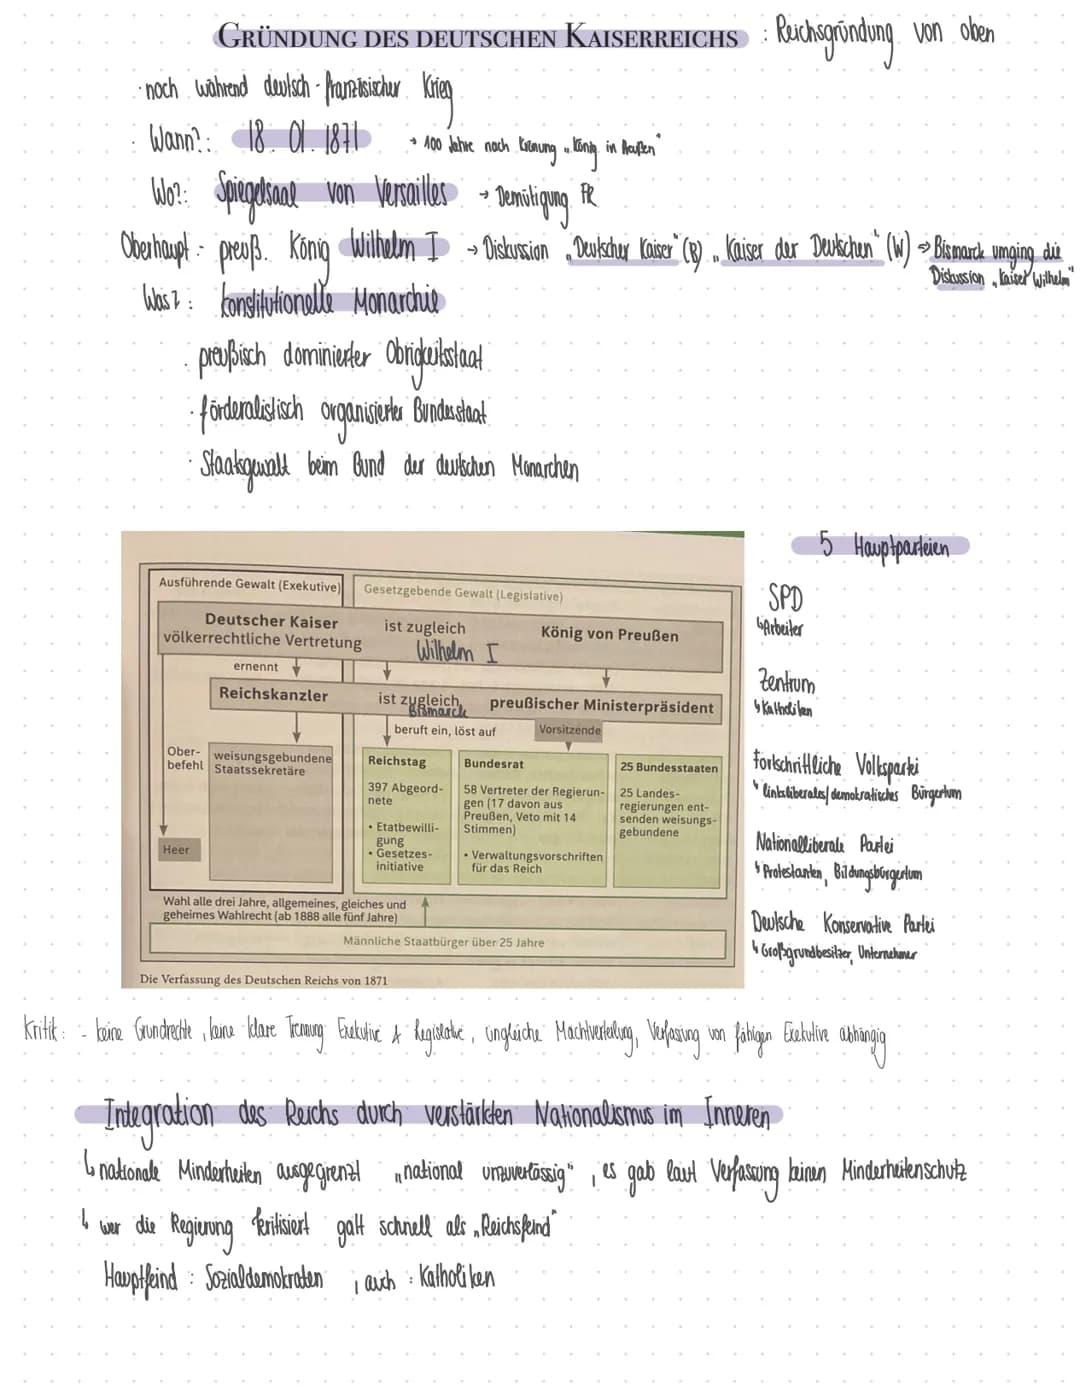 GRÜNDUNG DES DEUTSCHEN KAISERREICHS : Reichsgründung von oben
· noch während deutsch-französischer Krieg
· Wann?: 18. 01. 1871 → 100 Jahre nach Krönung „König in Preußen"
Wo?: Spiegelsaal von Versailles → Demütigung FR
Oberhaupt: preuß. König Wilhelm I → Diskussion „Deutscher Kaiser" (B) „Kaiser der Deutschen" (W) ⇒ Bismarck umging die
Diskussion „Kaiser Wilhelm"
Was?: konstitutionelle Monarchie
· preußisch dominierter Obrigkeitsstaat
· förderalistisch organisierter Bundesstaat
· Staatsgewalt beim Bund der deutschen Monarchen
Ausführende Gewalt (Exekutive)
Gesetzgebende Gewalt (Legislative)
Deutscher Kaiser ist zugleich König von Preußen
völkerrechtliche Vertretung Wilhelm I
ernennt
Reichskanzler ist zugleich preußischer Ministerpräsident
Bismarck
beruft ein, löst auf
Vorsitzende
Ober-
befehl
weisungsgebundene
Staatssekretäre
Heer
Reichstag
397 Abgeord-
nete
• Etatbewilli-
gung
• Gesetzes-
initiative
Bundesrat
58 Vertreter der Regierun-
gen (17 davon aus
Preußen, Veto mit 14
Stimmen)
• Verwaltungsvorschriften
für das Reich
25 Bundesstaaten
25 Landes-
regierungen ent-
senden weisungs-
gebundene
Wahl alle drei Jahre, allgemeines, gleiches und
geheimes Wahlrecht (ab 1888 alle fünf Jahre)
Männliche Staatbürger über 25 Jahre
Die Verfassung des Deutschen Reichs von 1871
5 Hauptparteien
SPD
↳ Arbeiter
Zentrum
↳ Katholiken
Fortschrittliche Volkspartei
↳ linksliberales/demokratisches Bürgertum
Nationalliberale Partei
↳ Protestanten, Bildungsbürgertum
Deutsche Konservative Partei
↳ Großgrundbesitzer, Unternehmer
Kritik: - keine Grundrechte, keine klare Trennung Exekutive & Legislative, ungleiche Machtverteilung, Verfassung von fähigen Exekutive abhängig
Integration des Reichs durch verstärkten Nationalismus im Inneren
↳ nationale Minderheiten ausgegrenzt „national unzuverlässig", es gab laut Verfassung keinen Minderheitenschutz
↳ wer die Regierung kritisiert galt schnell als „Reichsfeind"
Hauptfeind: Sozialdemokraten, auch: Katholiken